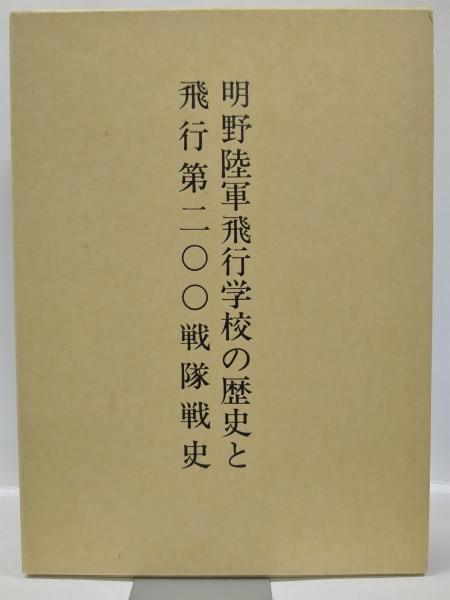 明野陸軍飛行学校の歴史と
飛行第二〇〇戦隊戦史